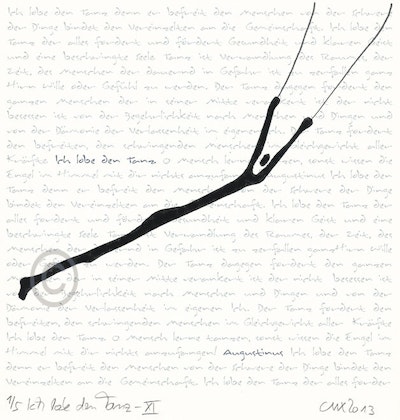 Ich lobe den Tanz denn er befreit den Menschen von der Schwere
der Dinge bindet den Vereinzelten an die Gemeinschaft. Ich lobe den
Tanz der alles fordert und fördert Gesundheit und klaren Geist
und eine beschwingte Seele Tanz ist Verwandlung des Raumes, der
Zeit, des Menschen der dauernd in Gefahr ist zu zerfallen ganz
Hirn Wille oder Gefühl zu werden. Der Tanz dagegen fordert den
ganzen Menschen der in seiner Mitte verankert ist der nicht
besessen ist von der Begehrlichkeit nach Menschen und Dingen und
von der Dämonie der Verlassenheit im eigenen Ich. Der Tanz fordert
den befreiten, den schwingenden Menschen im Gleichgewicht aller
Kräfte Ich lobe den Tanz O Mensch lerne tanzen, sonst wissen die
Engel im Himmel mit dir nichts anzufangen Augustinus Ich lobe den
Tanz denn er befreit den Menschen von der Schwere der Dinge
bindet den Vereinzelten an die Gemeinschaft. Ich lobe den Tanz der
alles fordert und fördert Gesundheit und klaren Geist und eine
beschwingte Seele Tanz ist Verwandlung des Raumes, der Zeit, des
Menschen der dauernd in Gefahr ist zu zerfallen ganz Hirn Wille
oder Gefühl zu werden. Der Tanz dagegen fordert den ganzen
Menschen der in seiner Mitte verankert ist der nicht besessen ist
von der Begehrlichkeit nach Menschen und Dingen und von der
Dämonie der Verlassenheit im eigenen Ich. Der Tanz fordert den
befreiten, den schwingenden Menschen im Gleichgewicht aller Kräfte
Ich lobe den Tanz O Mensch lerne tanzen, sonst wissen die Engel im
Himmel mit dir nichts anzufangen! Augustinus Ich lobe den Tanz
denn er befreit den Menschen von der Schwere der Dinge bindet
den Vereinzelten an die Gemeinschaft. Ich lobe den Tanz der alles
©
1/5 Ich lobe den Tanz - XI 2013